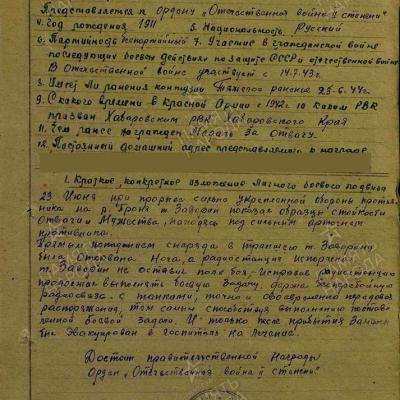 Представляется к Ордену „Отечественная война II степени"
4. Год рождения 1911 5. Национальность Русский
6. Партийность беспартийный 7. Участие в гражданской войне
последующих боевых действиях по защите СССР и отечественной войне
В Отечественной войне участвует с 14.7.43г.
8. Имеет ли ранения контузии Тяжелое ранение 23.6.44г.
9. С какого времени в Красной Армии с 1942г 10 каким РВК
призван Хабаровским РВК Хабаровского Края
11. Чем ранее награжден Медаль За Отвагу.
12. Постоянный домашний адрес представляемого к награде
1. Краткое, конкретное изложение личного боевого подвига
23 Июня при прорыве сильно укрепленной обороны против-
ника на р. Проня т. показал образцы стойкости
Отваги и Мужества, находясь под сильным артогнем
противника.
Прямым попаданием снаряда в траншею т.
была оторвана Нога, а радиостанция испорчена
т. не оставил поле боя, исправив радиостанцию
продолжал выполнять боевую задачу, держа бесперебойную
радиосвязь с танками, точно и своевременно передавал
распоряжения, тем самым способствуя выполнению постав-
ленной боевой Задачи. И только после прибытия Замены
был Эвакуирован в госпиталь на лечение.
Достоин правительственной Награды
Орден „Отечественная война II степени"